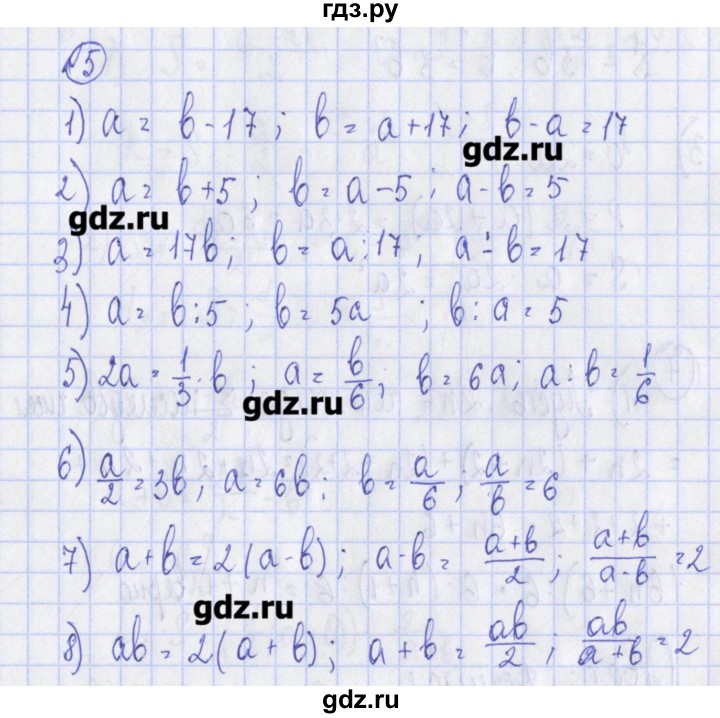 гдз.ру
№5
1) a = b - 17 ; b = a + 17 ; b - a = 17
gdz.ru
2) a = b + 5 ; b = a - 5 ; a - b = 5
gdz.ru
3) a = 17b ; b = a : 17 ; a : b = 17
4) a = b : 5 ; b = 5a ; b : a = 5
5) 2a = 1/3 · b ; a = b/6 ; b = 6a ; a : b = 1/6
gdz.ru
6) a/2 = 3b ; a = 6b ; b = a/6 ; a/b = 6
7) a + b = 2(a - b) ; a - b = (a + b)/2 ; (a + b)/(a - b) = 2
gdz.ru
8) ab = 2(a + b) ; a + b = ab/2 ; ab/(a + b) = 2
gdz.ru